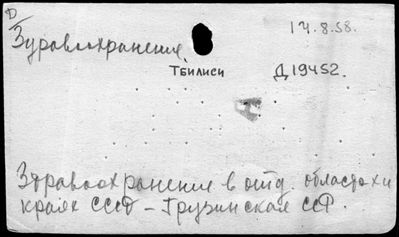 D
14.8.58.
Здравоохранение.
Тбилиси Д19452.
Здравоохранение в отд. областях и
краях СССР – Грузинская ССР.